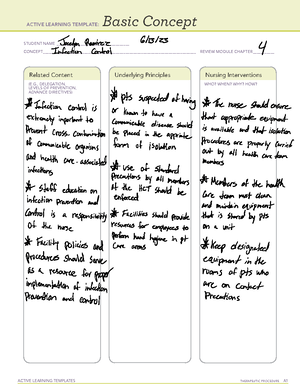 ACTIVE LEARNING TEMPLATE: Basic Concept
STUDENT NAME Jocelyn Ramirez 6/13/23
CONCEPT Infection Control REVIEW MODULE CHAPTER 4
Related Content
(E.G., DELEGATION,
LEVELS OF PREVENTION,
ADVANCE DIRECTIVES)
* Infection control is
extremely important to
prevent cross-contamination
of communicable organisms
and health care-associated
infections
* Staff education on
infection prevention and
control is a responsibility
of the nurse
* Facility policies and
procedures should serve
as a resource for proper
implementation of infection
prevention and control
Underlying Principles
* pts suspected of having
or known to have a
communicable disease should
be placed in the appropriate
form of isolation
* use of standard
precautions by all members
of the HCT should be
enforced
* Facilities should provide
resources for employees to
perform hand hygiene in pt
care areas
Nursing Interventions
WHO? WHEN? WHY? HOW?
* The nurse should ensure
that appropriate equipment
is available and that isolation
procedures are properly carried
out by all health care team
members
* Members of the health
care team must clean
and maintain equipment
that is shared by pts
on a unit
* Keep designated
equipment in the
rooms of pts who
are on contact
precautions
ACTIVE LEARNING TEMPLATES
THERAPEUTIC PROCEDURE A1